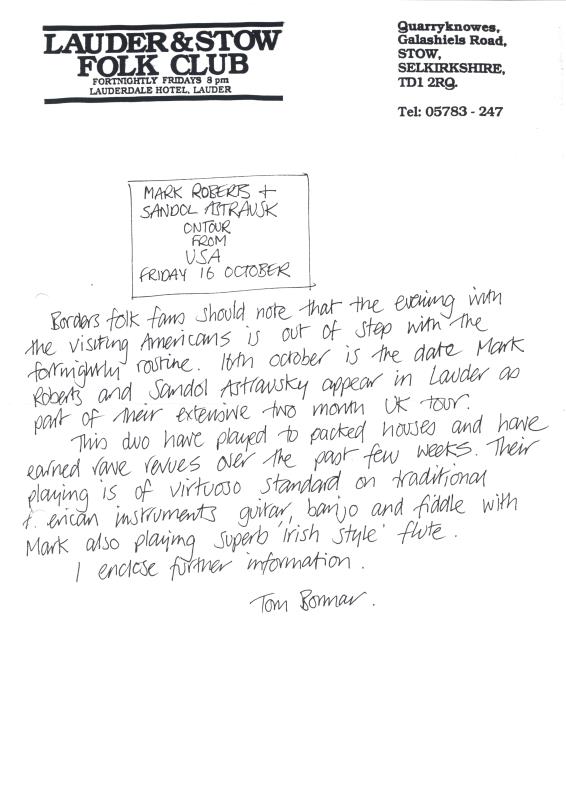 LAUDER & STOW
FOLK CLUB
FORTNIGHTLY FRIDAYS 8 pm
LAUDERDALE HOTEL, LAUDER
Quarryknowes,
Galashiels Road,
STOW,
SELKIRKSHIRE,
TD1 2RQ.
Tel: 05783 - 247
MARK ROBERTS +
SANDOL ASTRAUSK
ONTOUR
FROM
USA
FRIDAY 16 OCTOBER
Borders folk fans should note that the evening with
the visiting Americans is out of step with the
fortnightly routine. 16th october is the date Mark
Roberts and Sandol Astrausky appear in Lauder as
part of their extensive two month UK tour.
This duo have played to packed houses and have
earned rave revues over the past few weeks. Their
playing is of virtuoso standard on traditional
erican instruments guitar, banjo and fiddle with
Mark also playing superb 'irish style' flute.
I enclose further information.
Tom